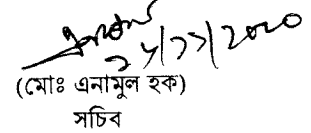 ২৮/১১/২০২০
(মোঃ এনামুল হক)
সচিব